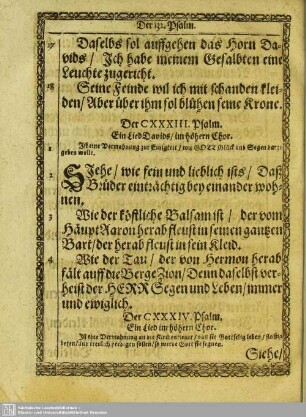 Der 132. Psalm.
17 Daselbs sol auffgehen das Horn Da-
vids/ Ich habe meinem Gesalbten eine
Leuchte zugericht.
18 Seine Feinde wil ich mit schanden klei-
den/ Aber über ihm sol blühen seine Krone.
Der CXXXIII. Psalm.
Ein Lied Davids/ im höhern Chor.
1 Ist eine Vermahnung zur Einigkeit/ wo GOTT Glück und Segen darzu
geben wolle.
2 SJehe/ wie fein und lieblich ists/ Daß
Brüder einträchtig bey einander woh-
nen.
3 Wie der köstliche Balsam ist/ der vom
Häupt Aaron herab fleust in seinen gantzen
Bart/ der herab fleust in sein Kleid.
4 Wie der Tau/ der von Hermon herab
fält auff die Berge Zion/ Denn daselbst ver-
heist der HERR Segen und Leben/ immer
und ewiglich.
Der CXXXIV. Psalm.
Ein Lied im höhern Chor.
Ist eine Vermahnung an die Kirchendiener/ daß sie Gottselig leben/ fleissig
beten/ und treulich predigen sollen/ so werde Gott sie segnen.
Siehe/